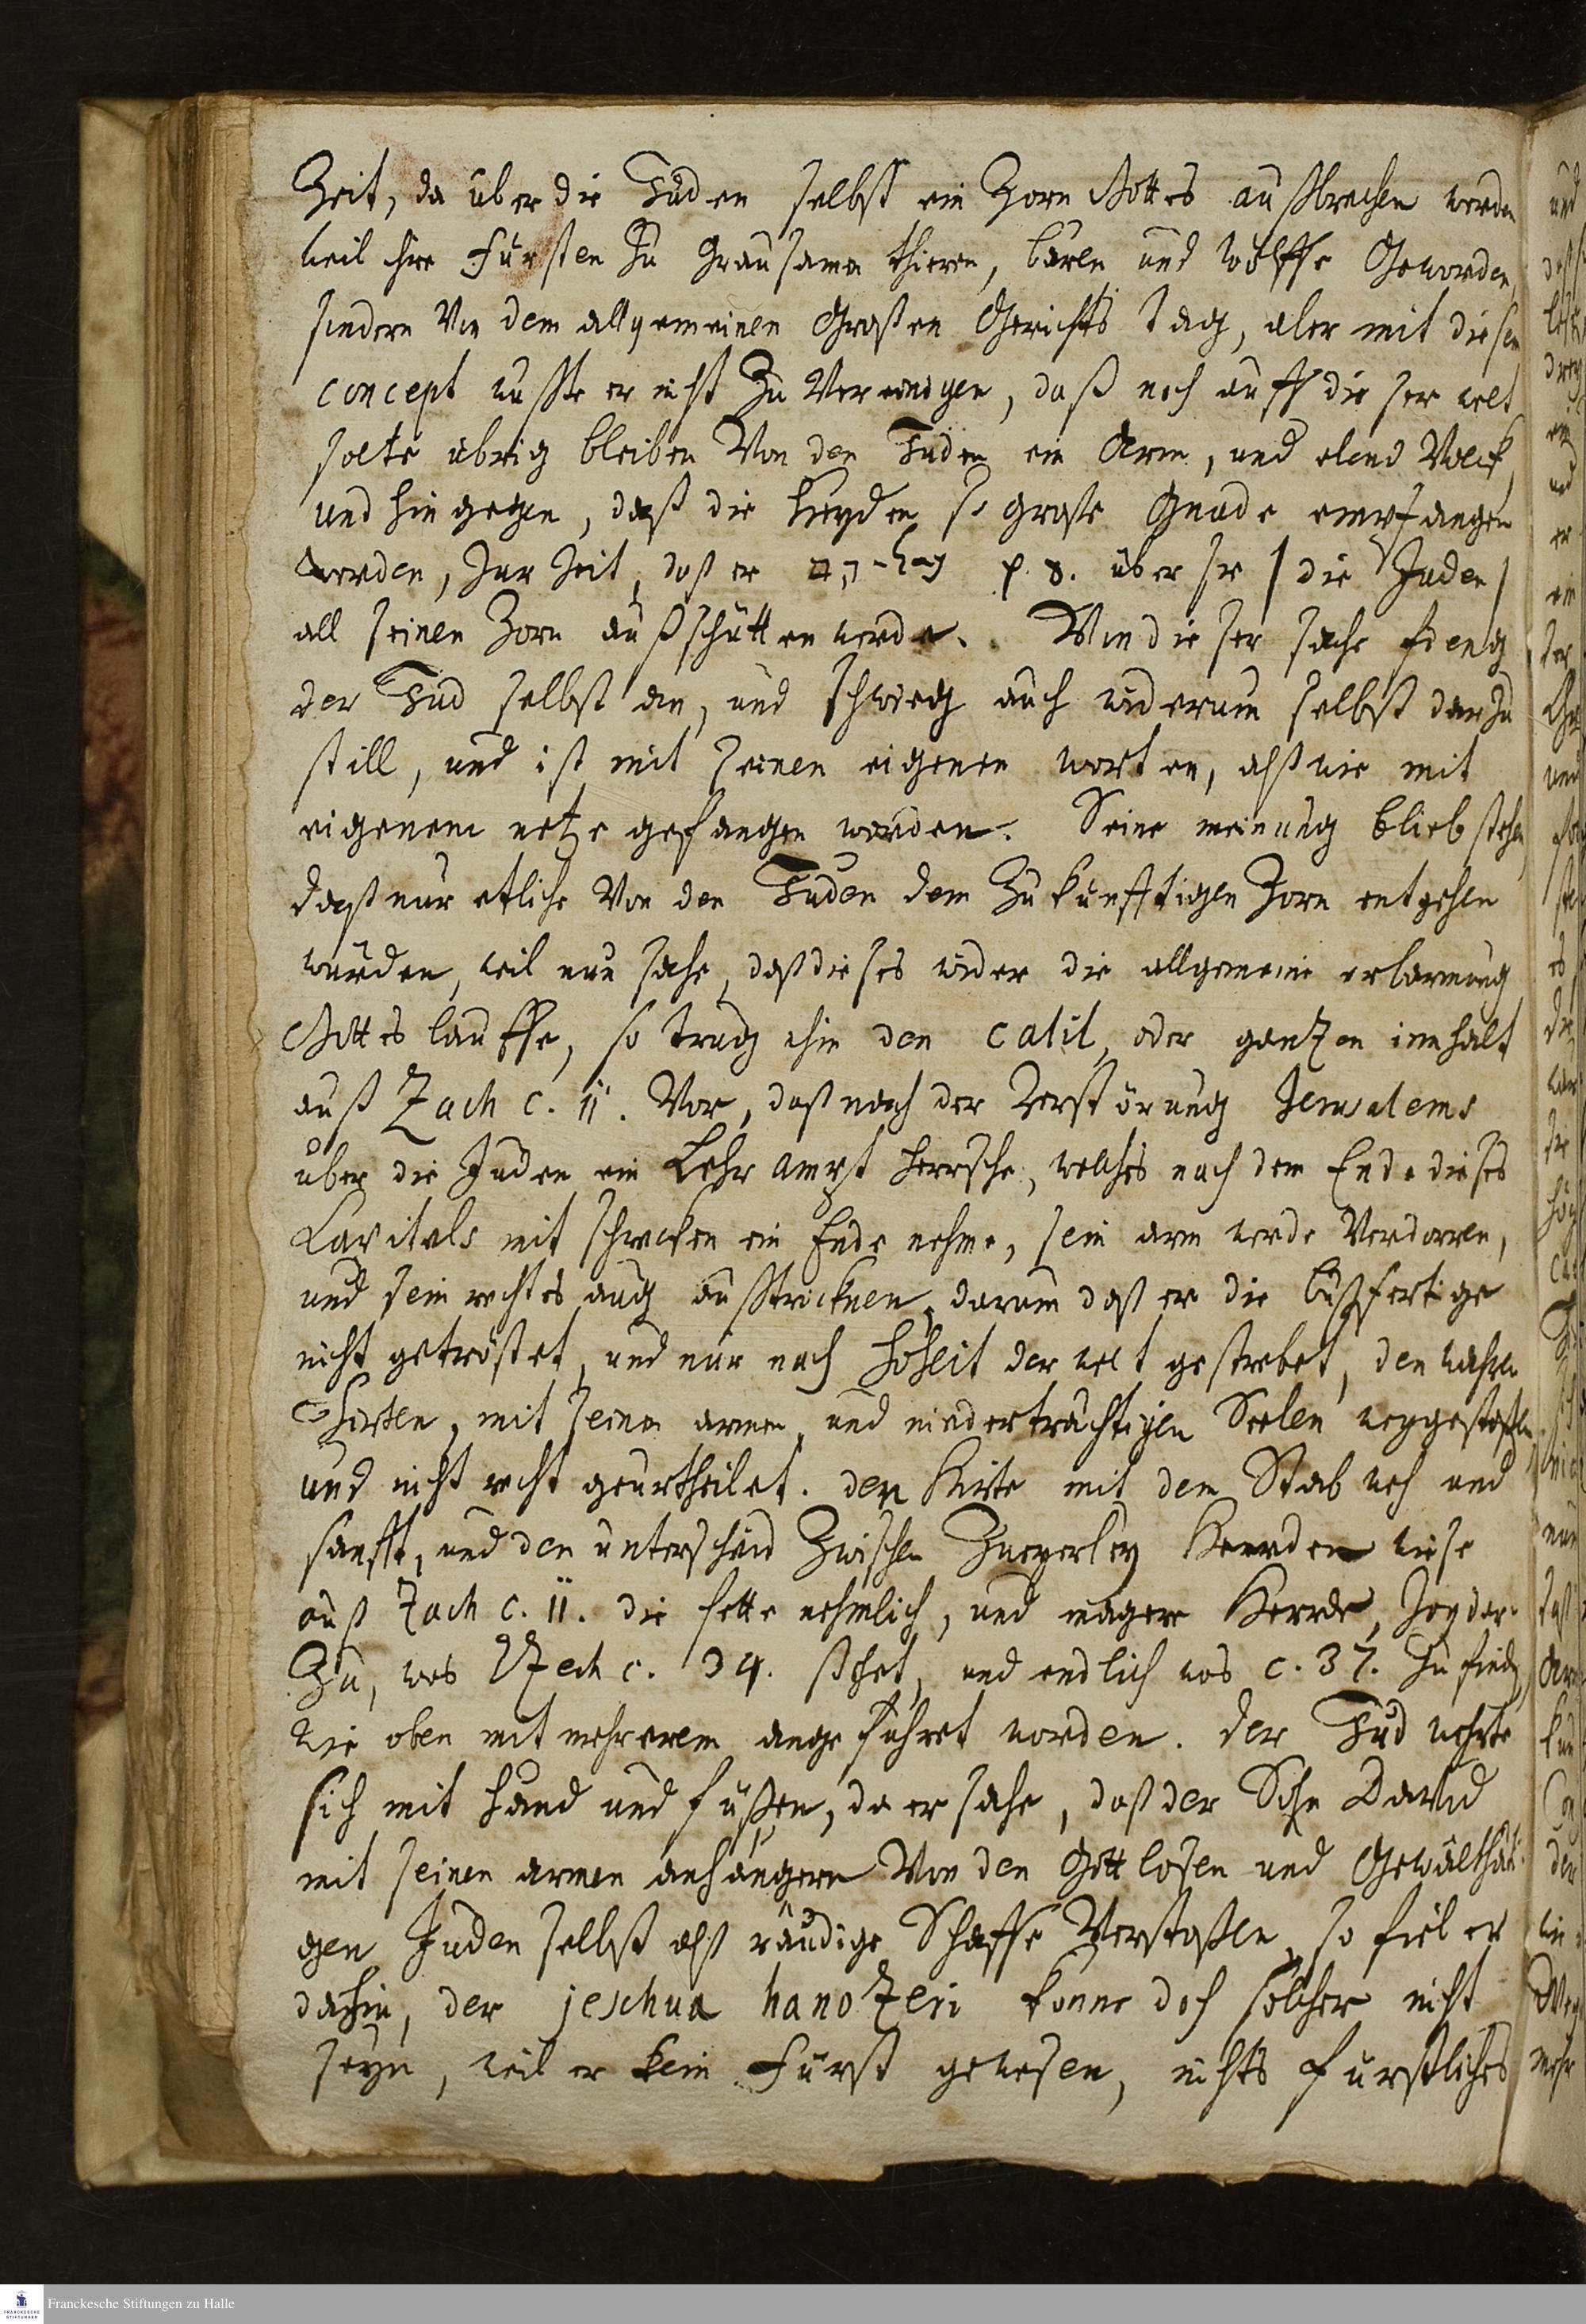 Zeit, da über die Juden selbst ein Zorn Gottes außbrechen werde
weil ihre Fürsten zu grausamen thieren, bären und wölffe Geworden,
sondern Von dem allgemeinen Großen Gerichts tag, aber mit diesem
concept wuste er nicht zu Vereinigen, daß noch auff dieser welt
solte übrig bleiben Von den Juden ein Arm, und elend Volck,
und hingegen, daß die Heyden so große Gnade empfangen
werden, zur Zeit, daß er p. 8. über sie / die Juden /
all seinen Zorn außschütten werde. Von dieser sache fieng
der Jud selbst an, und schwieg auch widerum selbst darzu
still, und ist mit seinen eigenen worten, alß wie mit
eigenem netze gefangen worden. Seine meinung blieb stehen,
daß nur etliche Von den Juden dem Zukünfftigen Zorn entgehen
würden, weil nun sahe, daß dieses wider die allgemeine erbarmung
Gottes lauffe, so trug ihm den calil, oder gantzen innhalt
auß Zach c. 11. Vor, daß nach der Zerstörung Jerusalems
über die Juden ein Lehr ampt herrsche, welches nach dem Ende dieses
Capitels mit schrecken ein Ende nehme, sein arm werde Verdorren,
und sein rechtes aug außtrocknen, darum daß er die bußfertige
nicht getröstet, und nur nach Hoheit der welt gestrebet, den wahren
Hirten, mit seinen armen, und niederträchtigen Seelen weggestoßen,
und nicht recht geurtheilet. den Hirte mit dem Stab weh und
sanfft, und den unterscheid Zwischen Zweyerley Heerden wiese
auß Zach c. 11. die fette nehmlich, und magere Heerde,
Zu, was Ezech c. 34. stehet, und endlich was c. 37. zu finden,
wie oben mit mehrerem angeführet worden. der Jud wehrte
sich mit händ und füßen, da er sahe, daß der Sohn David
mit seinen armen anhängern Von den Gottlosen und Gewaltthäti-
gen Juden selbst alß räudige Schaffe Verstoßen, so fiel er
dahin, der jeschua hanozeri könne doch solcher nicht
seyn, weil er kein Fürst gewesen, nichts fürstliches
Franckesche Stiftungen zu Halle